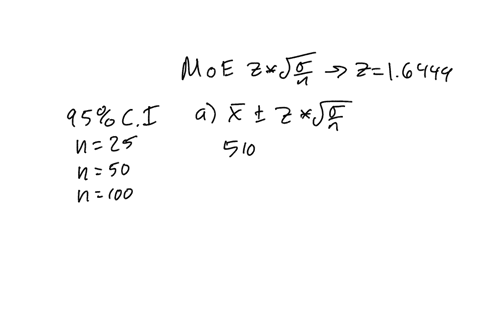 MoE z*√σ/n → z=1.6449
95% C.I
n=25
n=50
n=100
a) x̄ ± z*√σ/n
510